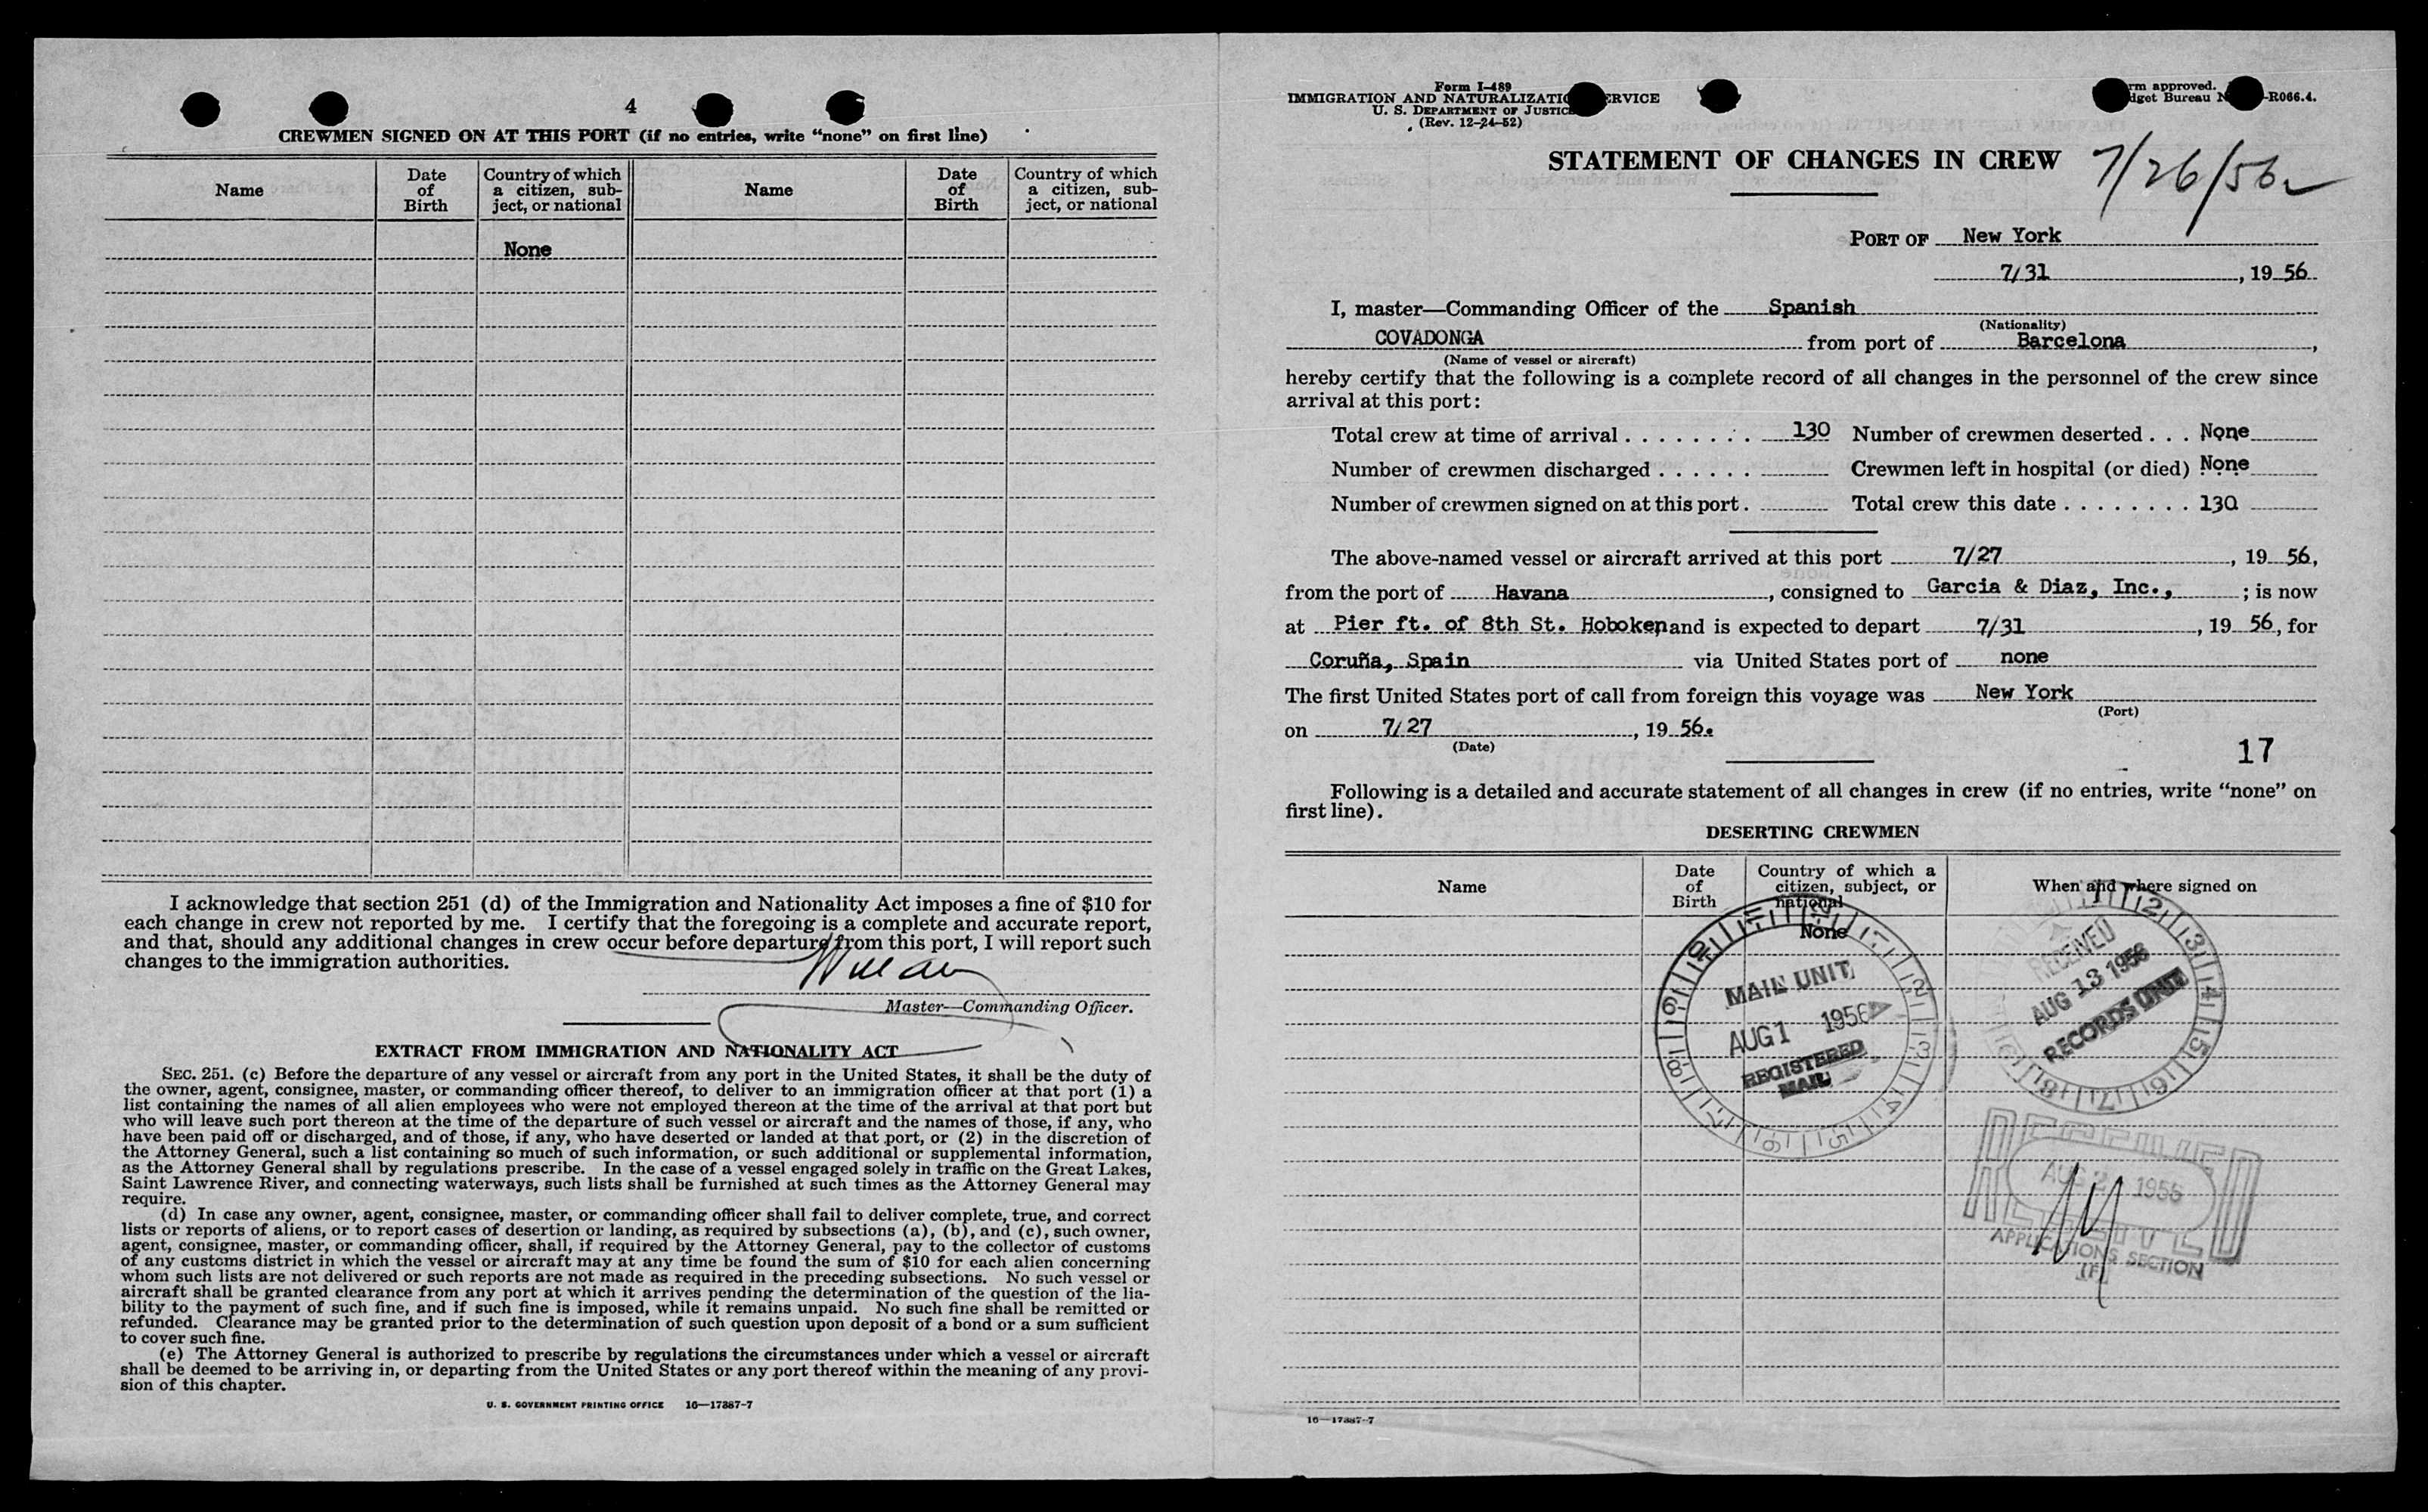 4
CREWMEN SIGNED ON AT THIS PORT (if no entries, write "none" on first line)
Name
Date of Birth
Country of which a citizen, sub-ject, or national
Name
Date of Birth
Country of which a citizen, sub-ject, or national
None
I acknowledge that section 251 (d) of the Immigration and Nationality Act imposes a fine of $10 for
each change in crew not reported by me. I certify that the foregoing is a complete and accurate report,
and that, should any additional changes in crew occur before departure from this port, I will report such
changes to the immigration authorities.
Master—Commanding Officer.
EXTRACT FROM IMMIGRATION AND NATIONALITY ACT
SEC. 251. (c) Before the departure of any vessel or aircraft from any port in the United States, it shall be the duty of
the owner, agent, consignee, master, or commanding officer thereof, to deliver to an immigration officer at that port (1) a
list containing the names of all alien employees who were not employed thereon at the time of the arrival at that port but
who will leave such port thereon at the time of the departure of such vessel or aircraft and the names of those, if any, who
have been paid off or discharged, and of those, if any, who have deserted or landed at that port, or (2) in the discretion of
the Attorney General, such a list containing so much of such information, or such additional or supplemental information,
as the Attorney General shall by regulations prescribe. In the case of a vessel engaged solely in traffic on the Great Lakes,
Saint Lawrence River, and connecting waterways, such lists shall be furnished at such times as the Attorney General may
require.
(d) In case any owner, agent, consignee, master, or commanding officer shall fail to deliver complete, true, and correct
lists or reports of aliens, or to report cases of desertion or landing, as required by subsections (a), (b), and (c), such owner,
agent, consignee, master, or commanding officer, shall, if required by the Attorney General, pay to the collector of customs
of any customs district in which the vessel or aircraft may at any time be found the sum of $10 for each alien concerning
whom such lists are not delivered or such reports are not made as required in the preceding subsections. No such vessel or
aircraft shall be granted clearance from any port at which it arrives pending the determination of the question of the lia-
bility to the payment of such fine, and if such fine is imposed, while it remains unpaid. No such fine shall be remitted or
refunded. Clearance may be granted prior to the determination of such question upon deposit of a bond or a sum sufficient
to cover such fine.
(e) The Attorney General is authorized to prescribe by regulations the circumstances under which a vessel or aircraft
shall be deemed to be arriving in, or departing from the United States or any port thereof within the meaning of any provi-
sion of this chapter.
U. S. GOVERNMENT PRINTING OFFICE 16—17387-7
Form I-489
IMMIGRATION AND NATURALIZATI RVICE
U. S. DEPARTMENT OF JUSTIC
(Rev. 12-24-52)
rm approved.
dget Bureau N -R066.4.
STATEMENT OF CHANGES IN CREW
7/26/56
PORT OF New York
7/31, 19 56
I, master—Commanding Officer of the Spanish
(Nationality)
COVADONGA from port of Barcelona,
(Name of vessel or aircraft)
hereby certify that the following is a complete record of all changes in the personnel of the crew since
arrival at this port:
Total crew at time of arrival . . . . . . . . 130 Number of crewmen deserted . . . None
Number of crewmen discharged . . . . . . Crewmen left in hospital (or died) None
Number of crewmen signed on at this port. Total crew this date . . . . . . . . 130
The above-named vessel or aircraft arrived at this port 7/27, 19 56,
from the port of Havana, consigned to Garcia & Diaz, Inc., ; is now
at Pier ft. of 8th St. Hoboken and is expected to depart 7/31, 19 56, for
Coruña, Spain via United States port of none
The first United States port of call from foreign this voyage was New York
(Port)
on 7/27, 19 56.
(Date)
17
Following is a detailed and accurate statement of all changes in crew (if no entries, write "none" on
first line).
DESERTING CREWMEN
Name
Date of Birth
Country of which a citizen, subject, or national
When and where signed on
None
MAIL UNIT
AUG 1 1956
REGISTERED
MAIL
RECEIVED
AUG 13 1956
RECORDS UNIT
RECEIVED
AUG 2 1956
APPLICATIONS SECTION
(F)
16—17387-7